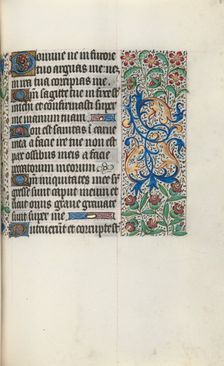 Domine ne in furore
tuo arguas me: ne
in ira tua corripias me.
Qm sagitte tue in fixe st
michi et confirmasti super
me manum tuam.
Non est sanitas i carne
mea a facie ire tue: non est
pax ossibus meis a facie
peccatorum meorum.
Qm iniquitates mee su
gresse sunt caput meum et
sicut onus graue grauate
sunt super me.
Putruerūt et corrupte st